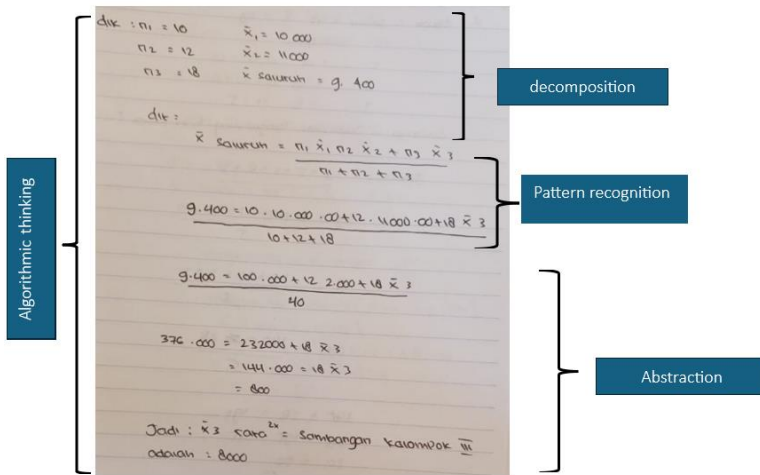 dik : n1 = 10 x̄1 = 10 000
n2 = 12 x̄2 = 11000
n3 = 18 x̄ saluruh = 9. 400
dit :
x̄ saluruh = n1 x̄1 n2 x̄2 + n3 x̄3
n1 + n2 + n3
9.400 = 10 . 10.000 .00 + 12 . 11000 .00 + 18 x̄3
10 + 12 + 18
9.400 = 100.000 + 12 2.000 + 18 x̄3
40
376.000 = 232000 + 18 x̄3
= 144.000 = 18 x̄3
= 800
Jadi : x̄3 rata²ˣ = sambangan kalompok III
adalah : 8000
Algorithmic thinking
decomposition
Pattern recognition
Abstraction